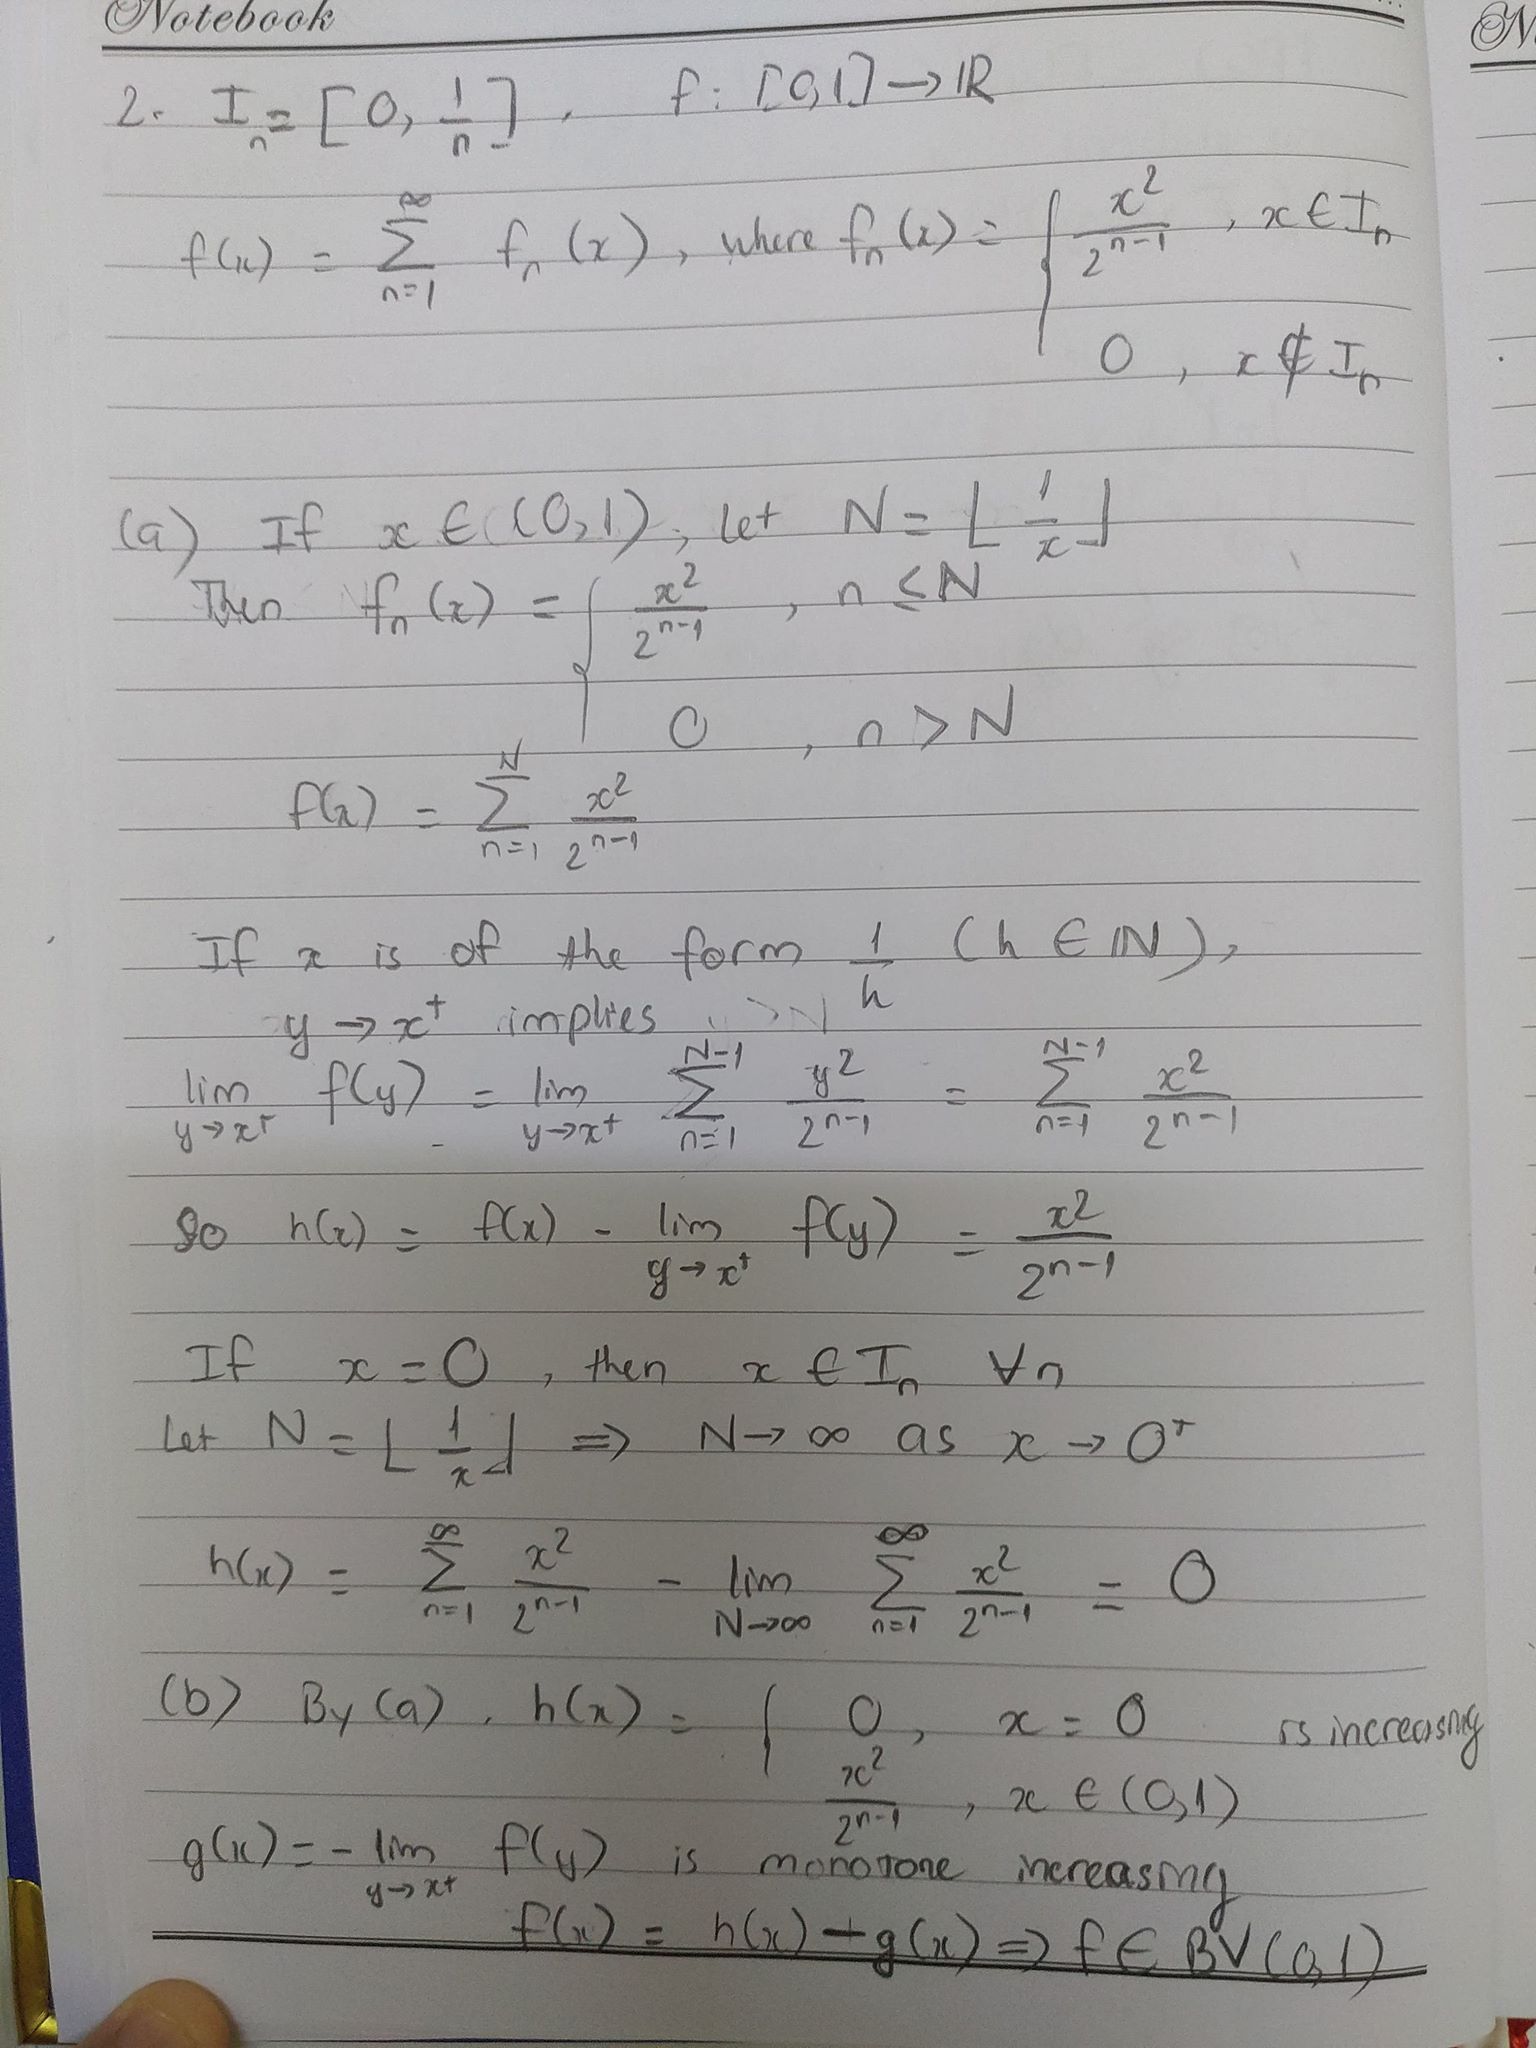 Notebook
2. Iₙ = [0, 1/n]. f: [0,1] → ℝ
f(x) = ∑_{n=1}^{∞} fₙ(x), where fₙ(x) = { x²/2^{n-1}, x ∈ Iₙ
0, x ∉ Iₙ
(a) If x ∈ (0,1), Let N = ⌊1/x⌋
Then fₙ(x) = { x²/2^{n-1}, n ≤ N
0, n > N
f(x) = ∑_{n=1}^{N} x²/2^{n-1}
If x is of the form 1/h (h ∈ ℕ),
y → x⁺ implies
lim_{y→x⁺} f(y) = lim_{y→x⁺} ∑_{n=1}^{N-1} y²/2^{n-1} = ∑_{n=1}^{N-1} x²/2^{n-1}
So h(x) = f(x) - lim_{y→x⁺} f(y) = x²/2^{n-1}
If x = 0, then x ∈ Iₙ ∀n
Let N = ⌊1/x⌋ ⇒ N → ∞ as x → 0⁺
h(x) = ∑_{n=1}^{∞} x²/2^{n-1} - lim_{N→∞} ∑_{n=1}^{∞} x²/2^{n-1} = 0
(b) By (a), h(x) = { 0, x = 0 is increasing
x²/2^{n-1}, x ∈ (0,1)
g(x) = - lim_{y→x⁺} f(y) is monotone increasing
f(x) = h(x) - g(x) ⇒ f ∈ BV(0,1)